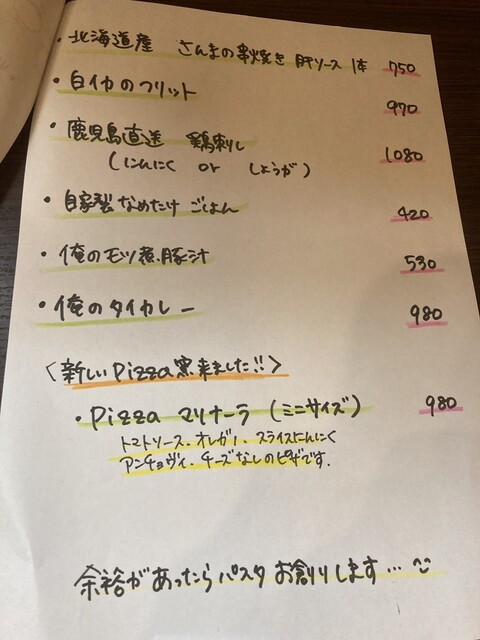 ・北海道産 さんまの串焼き 肝ソース 1本 750
・白イカのフリット 970
・鹿児島直送 鶏刺し 1080
(にんにく or しょうが)
・自家製なめたけ ごはん 420
・俺のモツ煮豚汁 530
・俺のタイカレー 980
〈新しいPizza窯来ました!!〉
・Pizza マリナーラ (ミニサイズ) 980
トマトソース、オレガノ、スライスにんにく
アンチョヴィ、チーズなしのピザです.
余裕があったらパスタお創りします…